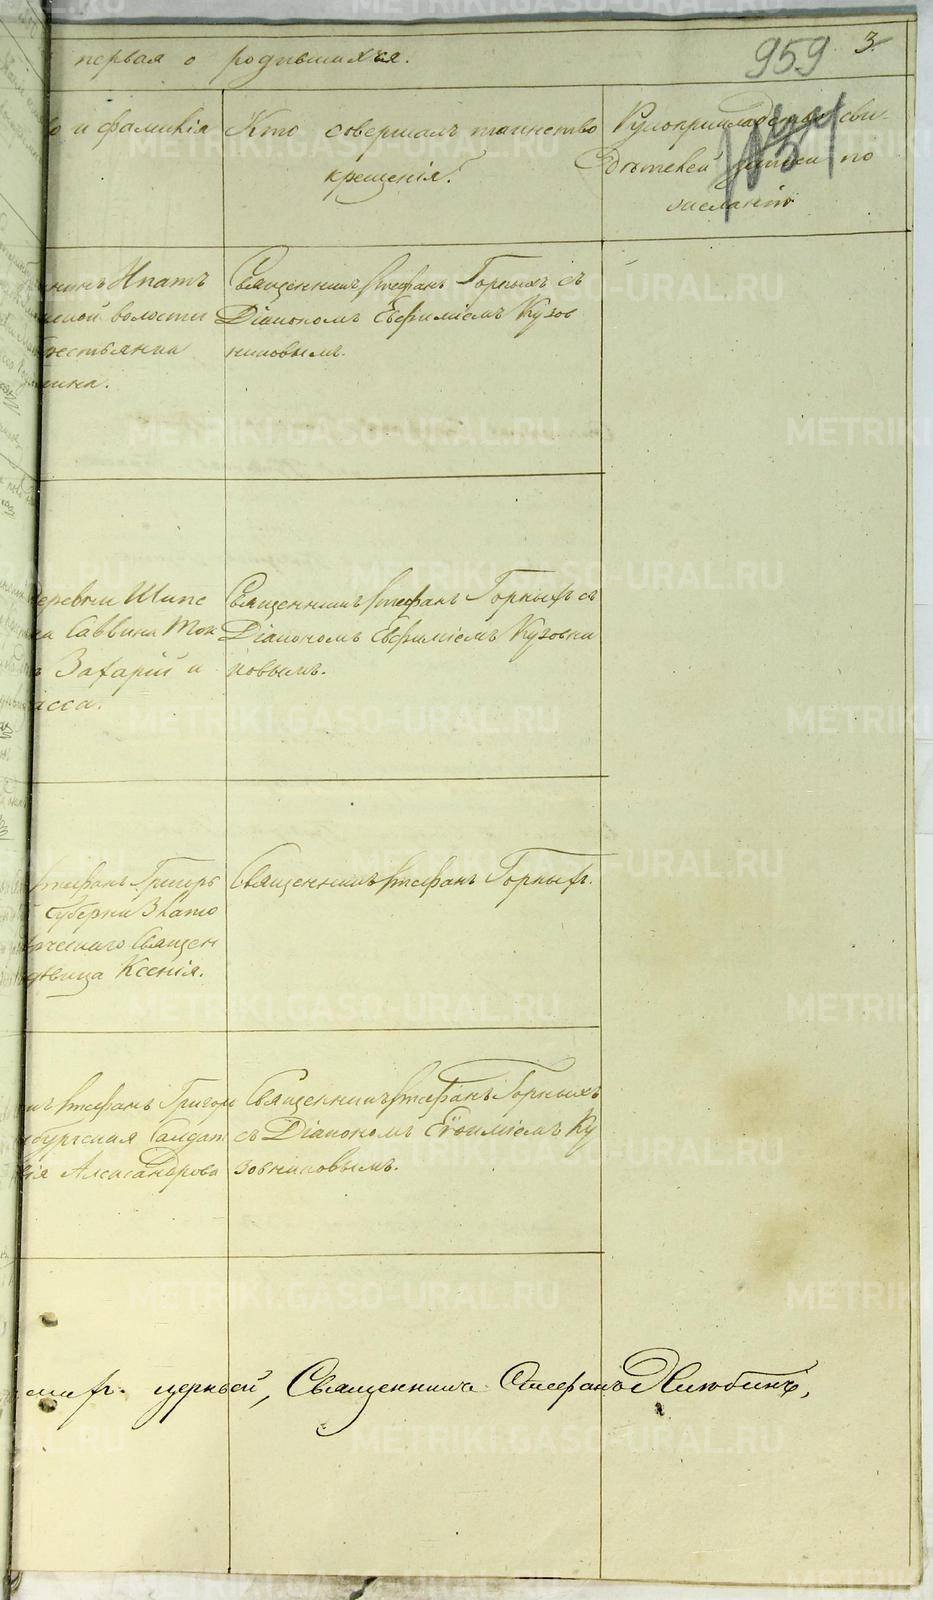 первая о родившихся.
959 3.
и фамилія
Кто совершалъ таинство
крещенія.
Рукоприкладство сви-
дѣтелей записи по
желанію
Ипатъ
волости
крестьянка
Священникъ Стефанъ Горныхъ съ
Діакономъ Евфиміемъ Кузов
никовымъ.
деревни Шипе
Саввина Ток
Захарій и
Священникъ Стефанъ Горныхъ съ
Діакономъ Евфиміемъ Кузовни
ковымъ.
Стефанъ Григорь
Губерніи Злато
Священ
дѣвица Ксенія.
Священникъ Стефанъ Горныхъ.
Стефанъ Григорь
бургская Салдат
Александрова
Священникъ Стефанъ Горныхъ
съ Діакономъ Евѳиміемъ Ку
зовниковымъ.
церквей, Священникъ Стефанъ Хлюбинъ,
METRIKI.GASO-URAL.RU